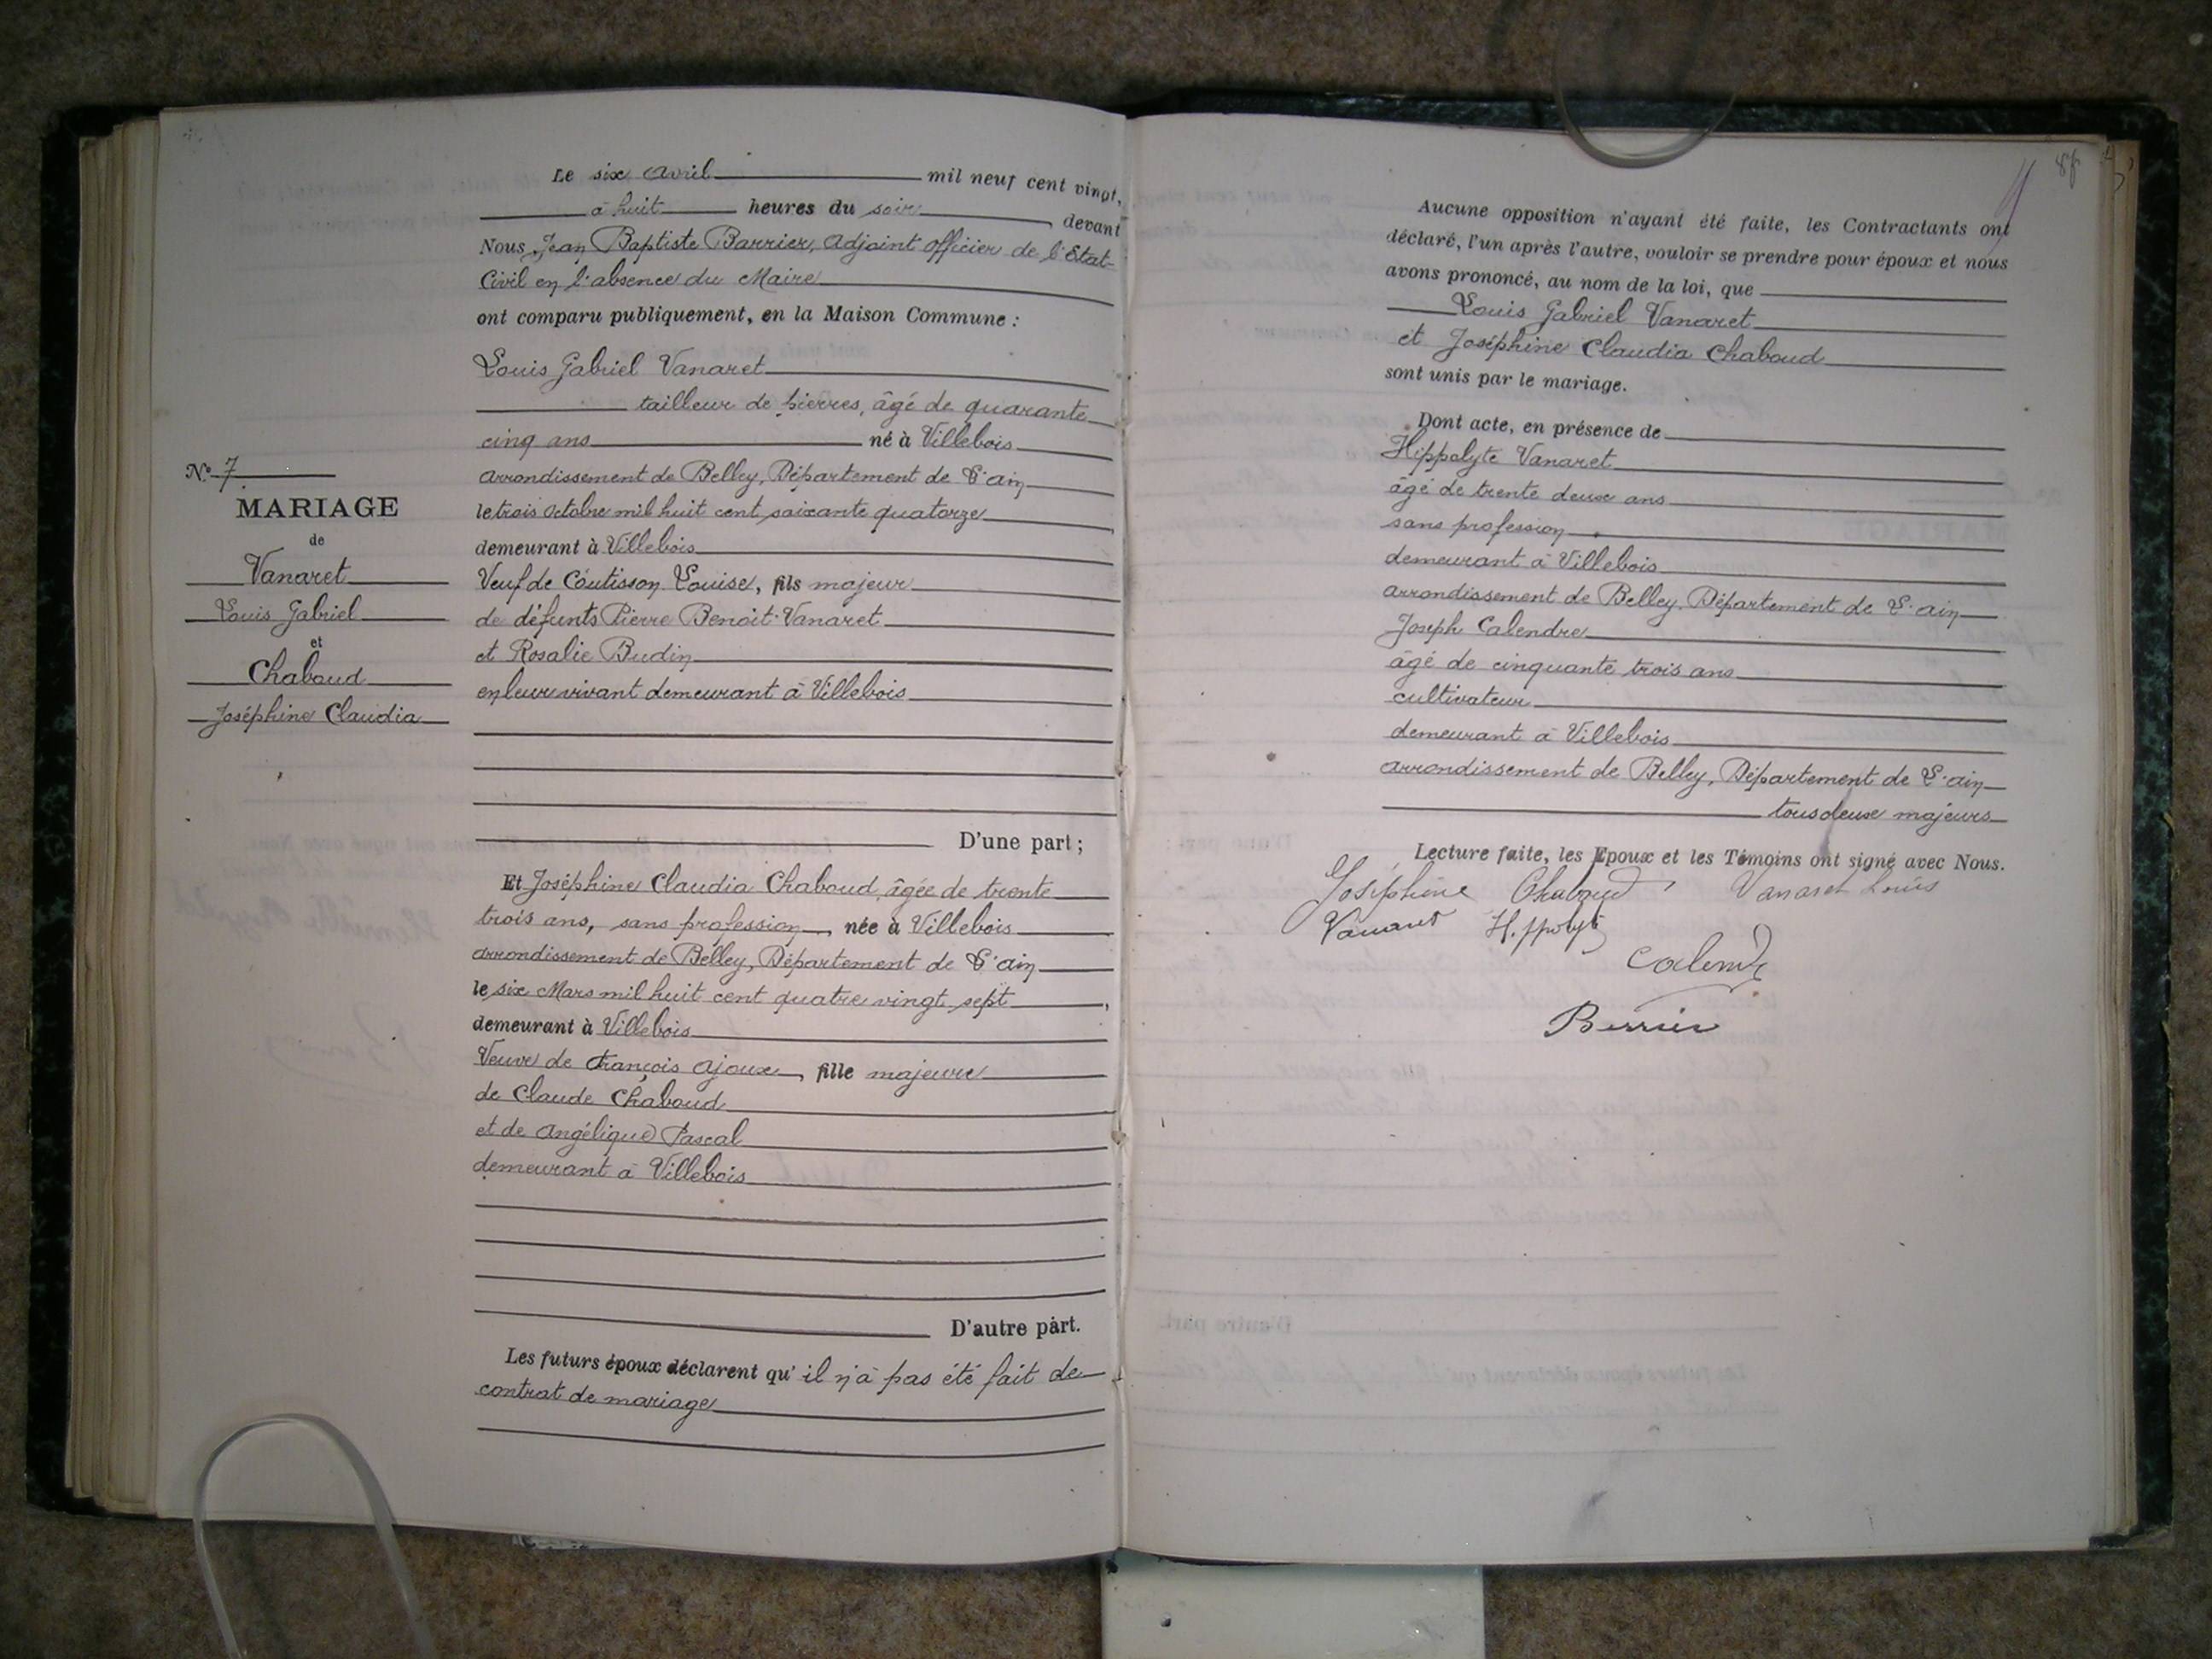 Le six avril mil neuf cent vingt,
à huit heures du soir devant
Nous Jean Baptiste Barrier, adjoint officier de l'Etat-
Civil en l'absence du Maire
ont comparu publiquement, en la Maison Commune :
Louis Gabriel Vanaret
tailleur de pierres, âgé de quarante
cinq ans né à Villebois
arrondissement de Belley, Département de L'ain
le trois octobre mil huit cent soixante quatorze
demeurant à Villebois
Veuf de Coutisson Louise, fils majeur
de défunts Pierre Benoit Vanaret
et Rosalie Budin
en leur vivant demeurant à Villebois
D'une part ;
N° 7
MARIAGE
de
Vanaret
Louis Gabriel
et
Chaboud
Joséphine Claudia
Et Joséphine Claudia Chaboud, âgée de trente
trois ans, sans profession, née à Villebois
arrondissement de Belley, Département de L'ain
le six Mars mil huit cent quatre vingt sept,
demeurant à Villebois
Veuve de François ajoux, fille majeure
de Claude Chaboud
et de Angélique Pascal
demeurant à Villebois
D'autre part.
Les futurs époux déclarent qu'il n'a pas été fait de
contrat de mariage
Aucune opposition n'ayant été faite, les Contractants ont
déclaré, l'un après l'autre, vouloir se prendre pour époux et nous
avons prononcé, au nom de la loi, que
Louis Gabriel Vanaret
et Joséphine Claudia Chaboud
sont unis par le mariage.
Dont acte, en présence de
Hippolyte Vanaret
âgé de trente deux ans
sans profession
demeurant à Villebois
arrondissement de Belley, Département de L'ain
Joseph Calendre
âgé de cinquante trois ans
cultivateur
demeurant à Villebois
arrondissement de Belley, Département de L'ain
tous deux majeurs
Lecture faite, les Epoux et les Témoins ont signé avec Nous.
Joséphine Chaboud Vanaret Louis
Vanaret Hippolyte
Calendre
Barrier